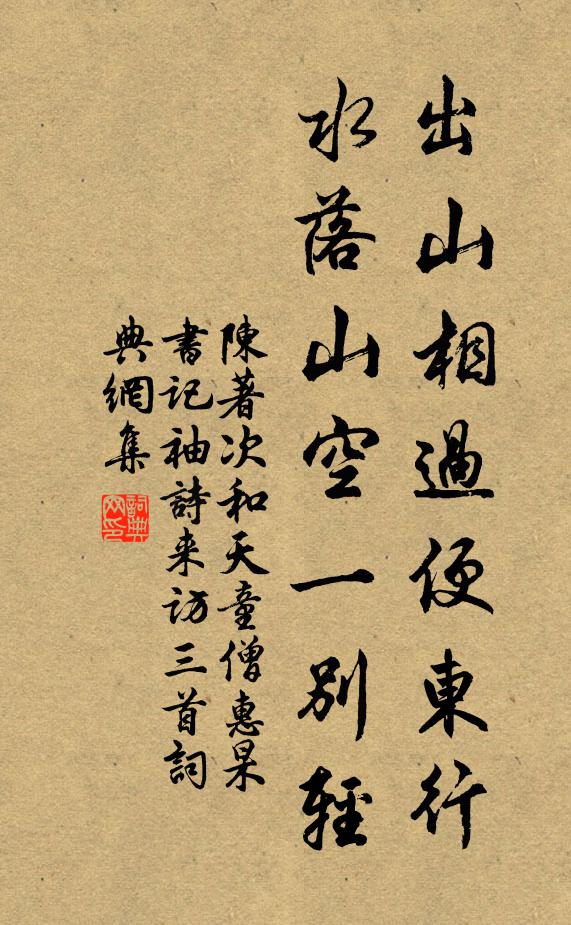 出山相過便東行
水落山空一別輕
陳著次和天童僧惠杲
書記袖詩来訪三首詞
典網集
詞典
网印